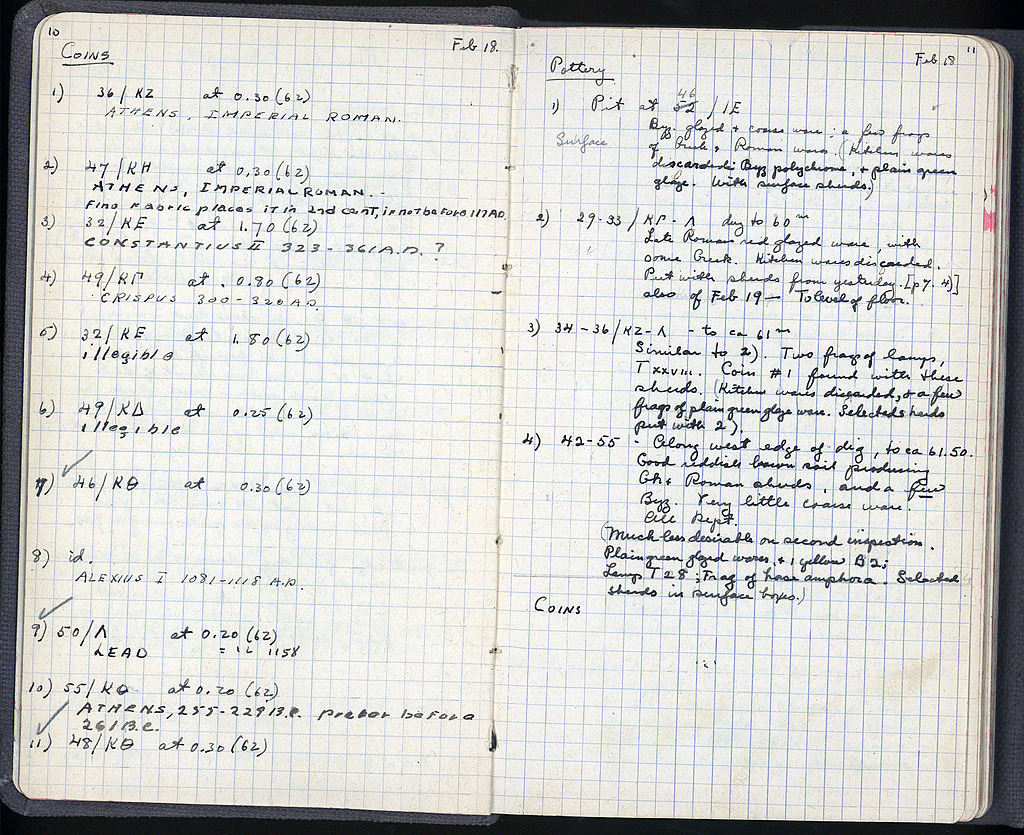 10
Feb 18.
COINS
1) 36/KZ at 0.30 (62)
ATHENS, IMPERIAL ROMAN.
2) 47/KH at 0,30 (62)
ATHENS, IMPERIAL ROMAN.-
Fine fabric places it in 2nd cent, if not before 117 A.D.
3) 32/KE at 1.70 (62)
CONSTANTIUS II 323-361 A.D. ?
4) 49/KΓ at .0.80 (62)
CRISPUS 300-326 A.D.
5) 32/KE at 1.80 (62)
illegible
6) 49/KΔ at 0.25 (62)
illegible
7) 46/KΘ at 0.30 (62)
8) id.
ALEXIUS I 1081-1118 A.D.
9) 50/Λ at 0.20 (62)
LEAD = IL 1158
10) 55/KΘ at 0.20 (62)
ATHENS, 255-229 B.C. prefer before
261 B.C.
11) 48/KΘ at 0.30 (62)
11
Feb 18
Pottery
1) Pit at 52 46 / IE
Surface
Byz. glazed + coarse ware; a few frags
of Greek & Roman wares. (Kitchen wares
discarded: Byz polychrome, + plain green
glaze. With surface sherds.)
2) 29-33 / KP-Λ dug to 60 m
Late Roman red glazed ware, with
some Greek. Kitchen wares discarded.
Put with sherds from yesterday [p7. 4)]
also of Feb 19 — To level of floor.
3) 34-36/KZ-Λ - to ca 61 m
Similar to 2). Two frags of lamps,
T XXVIII. Coin #1 found with these
sherds. (Kitchen wares discarded, & a few
frags of plain green glaze ware. Selected sherds
put with 2).
4) 42-55 - Along west edge of dig, to ca 61.50.
Good reddish brown soil producing
Gk & Roman sherds, and a few
Byz. Very little coarse ware.
All Kept.
(Much less desirable on second inspection.
Plain green glazed wares, + 1 yellow B2;
Lamp T 28; Frag of base amphora. Selected
sherds in surface boxes.)
COINS